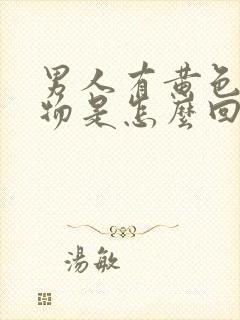 男人有黄色
物是怎麼回
湯敏